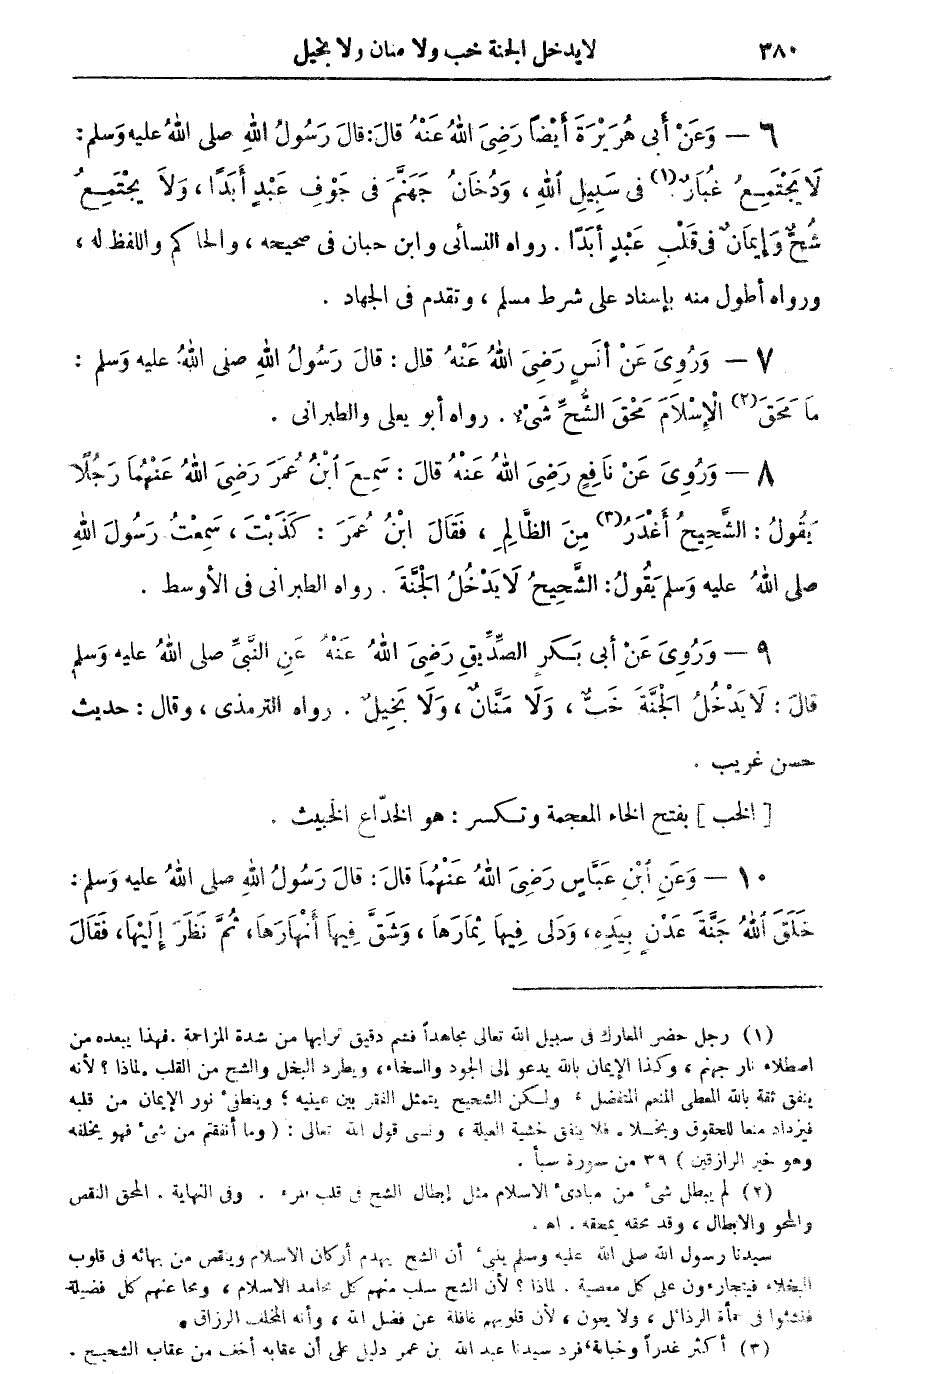 ٣٨٠ لا يدخل الجنة خب ولا منان ولا بخيل
٦ — وَعَنْ أَبِى هُرَيْرَةَ أَيْضاً رَضِىَ اللهُ عَنْهُ قالَ: قالَ رَسُولُ اللهِ صلى اللهُ عليه وَسلم :
لَا يَجْتَمِعُ غُبَارٌ (١) فى سَبِيلِ ٱللهِ ، وَدُخَانُ جَهَنَّمَ فى جَوْفِ عَبْدٍ أَبَدًا ، وَلاَ يَجْتَمِعُ
شُحٌّ وَإِيمَانٌ فى قَلْبِ عَبْدٍ أَبَدًا . رواه النسأئى وابن حبان فى صحيحه ، والحاكم واللفظ له ،
ورواه أطول منه بإسناد على شرط مسلم ، وتقدم فى الجهاد .
٧ — وَرُوِىَ عَنْ أَنَسٍ رَضِىَ اللهُ عَنْهُ قال : قالَ رَسُولُ اللهِ صلى اللهُ عليه وَسلم :
مَا مَحَقَ (٢) الْإِسْلاَمَ مَحْقَ الشُّحِّ شَىْءٌ . رواه أبو يعلى والطبرانى .
٨ — وَرُوِىَ عَنْ نَافِعٍ رَضِىَ اللهُ عَنْهُ قالَ : سَمِعَ ٱبْنُ عُمَرَ رَضِىَ اللهُ عَنْهُمَا رَجُلًا
يَقُولُ : الشَّحِيحُ أَغْدَرُ (٣) مِنَ الظَّالِمِ ، فَقَالَ ابْنُ عُمَرَ : كَذَبْتَ ، سَمِعْتُ رَسُولَ اللهِ
صلى اللهُ عليه وَسلم يَقُولُ : الشَّحِيحُ لَا يَدْخُلُ الجَنَّةَ . رواه الطبرانى فى الأوسط .
٩ — وَرُوِىَ عَنْ أَبى بَكرٍ الصِّدِّيقِ رَضِىَ اللهُ عَنْهُ عَنِ النَّبىِّ صلى اللهُ عليه وَسلم
قالَ : لَا يَدْخُلُ الجَنَّةَ خَبٌّ ، وَلَا مَنَّانٌ ، وَلَا بَخِيلٌ . رواه الترمذى ، وقال : حديث
حسن غريب .
[ الخب ] بفتح الخاء المعجمة وتكسر : هو الخدّاع الخبيث .
١٠ — وَعَنِ ٱبْنِ عَبَّاسٍ رَضِىَ اللهُ عَنْهُمَا قالَ : قالَ رَسُولُ اللهِ صلى اللهُ عليه وَسلم :
خَلَقَ ٱللهُ جَنَّةَ عَدْنٍ بِيَدِهِ ، وَدَلى فِيهَا ثِمَارَهَا ، وَشَقَّ فِيهَا أَنْهَارَهَا ، ثُمَّ نَظَرَ إِلَيْهَا ، فَقَالَ
(١) رجل حضر المعارك فى سبيل الله تعالى مجاهداً فشم دقيق ترابها من شدة المزاحمة . فهذا يبعده من
اصطلاء نار جهنم ، وكذا الإيمان بالله يدعو إلى الجود والسخاء ، ويطرد البخل والشح من القلب . لماذا ؟ لأنه
ينفق ثقة بالله المعطى المنعم المتفضل ، ولكن الشحيح يتمثل الفقر بين عينيه ؛ وينطفئ نور الإيمان من قلبه
فيزداد منعا للحقوق وبخلا . فلا ينفق خشية العيلة ، ونسى قول الله تعالى : ( وما أنفقتم من شىء فهو يخلفه
وهو خير الرازقين ) ٣٩ من سورة سبأ .
(٢) لم يبطل شىء من مبادئ الاسلام مثل إبطال الشح فى قلب المرء . وفى النهاية . المحق النقص
والمحو والابطال ، وقد محقه يمحقه . اه .
سيدنا رسول الله صلى الله عليه وسلم ينبئ أن الشح يهدم أركان الاسلام وينقص من بهائه فى قلوب
البخلاء فيتجارءون على كل معصية . لماذا ؟ لأن الشح سلب منهم كل محامد الاسلام ، ومحا عنهم كل فضيلة
فنشئوا فى حمأة الرذائل ، ولا يعون ، لأن قلوبهم غافلة عن فضل الله ، وأنه المخلف الرزاق .
(٣) أكثر غدراً وخيانة ، فرد سيدنا عبد الله بن عمر دليل على أن عقابه أخف من عقاب الشحيح .